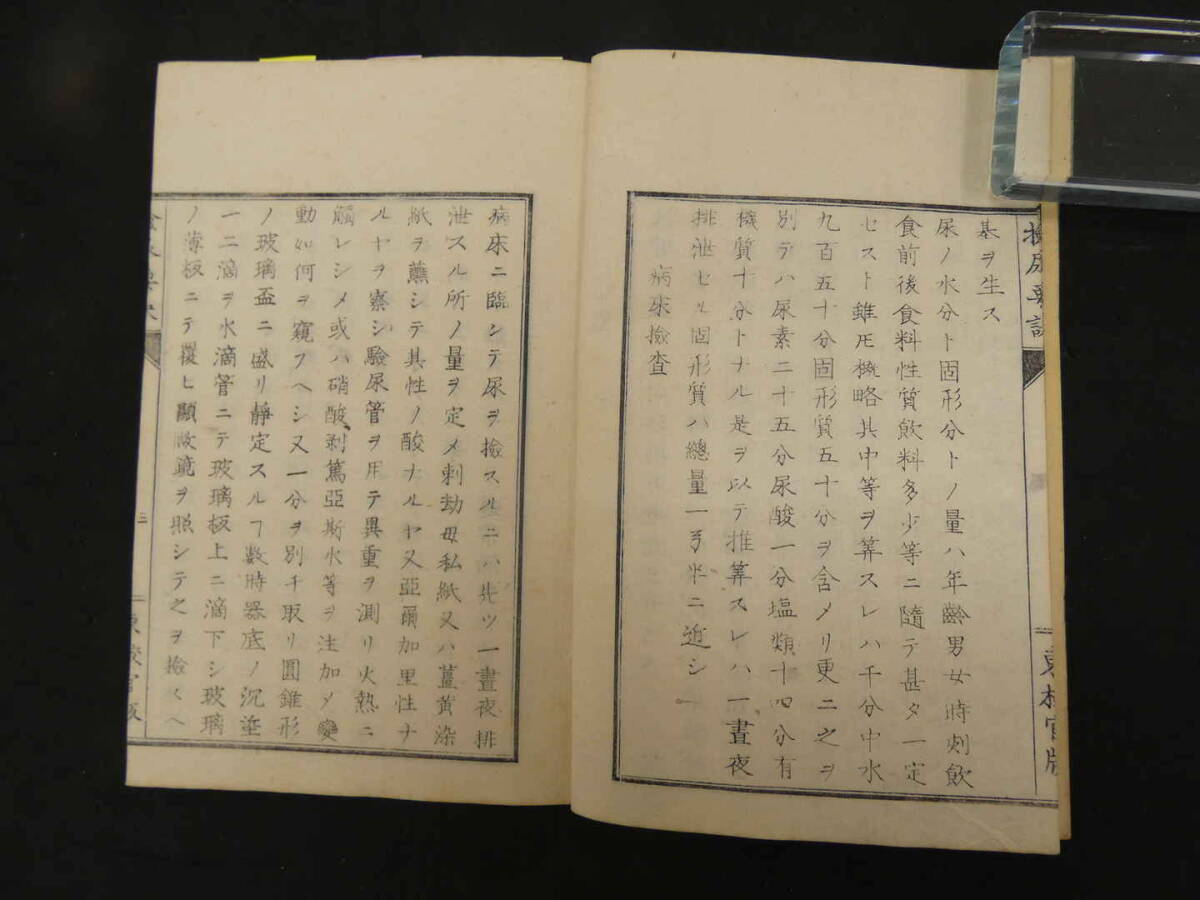 基ヲ生ス
尿ノ水分ト固形分トノ量ハ年齡男女時刻飲
食前後食料性質飲料多少等ニ隨テ甚タ一定
セスト雖𪜈概略其中等ヲ算スレハ千分中水
九百五十分固形質五十分ヲ含メリ更ニ之ヲ
別テハ尿素二十五分尿酸一分塩類十四分有
機質十分トナル是ヲ以テ推算スレハ一晝夜
排泄セル固形質ハ總量一 半ニ近シ
病床檢査
檢尿要訣
二
東校官版
病床ニ臨シテ尿ヲ檢スルニハ先ツ一晝夜排
泄スル所ノ量ヲ定メ刺劫母私紙又ハ薑黃染
紙ヲ蘸シテ其性ノ酸ナルヤ又亞爾加里性ナ
ルヤヲ察シ驗尿管ヲ用テ異重ヲ測リ火熱ニ
觸レシメ或ハ硝酸剥篤亞斯水等ヲ注加メ變
動如何ヲ窺フヘシ又一分ヲ別チ取リ圓錐形
ノ玻璃盃ニ盛リ靜定スルヿ數時器底ノ沉垽
一二滴ヲ水滴管ニテ玻璃板上ニ滴下シ玻璃
ノ薄板ニテ覆ヒ顯微鏡ヲ照シテ之ヲ檢スヘ
三
東校官版